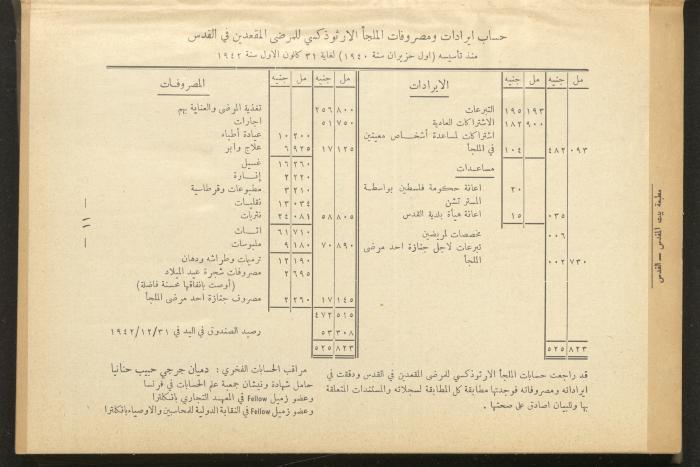 حساب ايرادات ومصروفات الملجأ الارثوذكسي للمرضى المقعدين في القدس
منذ تأسيسه (اول حزيران سنة ١٩٤٠) لغاية ٣١ كانون الاول سنة ١٩٤٢
الايرادات
مل جنيه مل جنيه
التبرعات ١٩٣ ١٩٥
الاشتراكات العادية ٩٠٠ ١٨٢
اشتراكات لمساعدة أشخاص معينين
في الملجأ ١٠٤ ٠٩٣ ٤٨٢
مساعدات
اعانة حكومة فلسطين بواسطة ٢٠
المستر تشن
اعانة هيأة بلدية القدس ١٥ ٠٣٥
مخصصات لمريضين ٠٠٦
تبرعات لاجل جنازة احد مرضى
الملجأ ٧٣٠ ٠٠٢
٨٢٣ ٥٢٥
المصروفات
مل جنيه مل جنيه
تغذية المرضى والعناية بهم ٨٠٠ ٢٥٦
اجارات ٧٥٠ ٥١
عيادة أطباء ٢٠٠ ١٠
علاج وابر ٩٢٥ ٦ ١٢٥ ١٧
غسيل ٢٦٠ ١٦
إنارة ٢٢٠ ٢
مطبوعات وقرطاسية ٢١٠ ٣
نقليات ٠٣٤ ١٣
نثريات ٠٨١ ٢٤ ٨٠٥ ٥٨
اثاث ٧١٠ ٦١
ملبوسات ١٨٠ ٩ ٨٩٠ ٧٠
ترميمات وطراشه ودهان ١٩٠ ١٢
مصروفات شجرة عيد الميلاد ٦٩٥ ٢
(أوصت بانفاقها محسنة فاضلة)
مصروف جنازة احد مرضى الملجأ ٢٦٠ ٢ ١٤٥ ١٧
٥١٥ ٤٧٢
رصيد الصندوق في اليد في ١٩٤٢/١٢/٣١ ٣٠٨ ٥٣
٨٢٣ ٥٢٥
قد راجعت حسابات الملجأ الارثوذكسي للمرضى المقعدين في القدس ودققت في
ايراداته ومصروفاته فوجدتها مطابقة كل المطابقة لسجلاته والمستندات المتعلقة
بها وللبيان اصادق على صحتها .
مراقب الحسابات الفخري : دميان جرجي حبيب حنانيا
حامل شهادة ونيشان جمعية علم الحسابات في فرنسا
وعضو زميل Fellow في المعهد التجاري بانكلترا
وعضو زميل Fellow في النقابة الدولية للمحاسبين والاوصياء بانكلترا
— ١١ —
مطبعة بيت المقدس — القدس